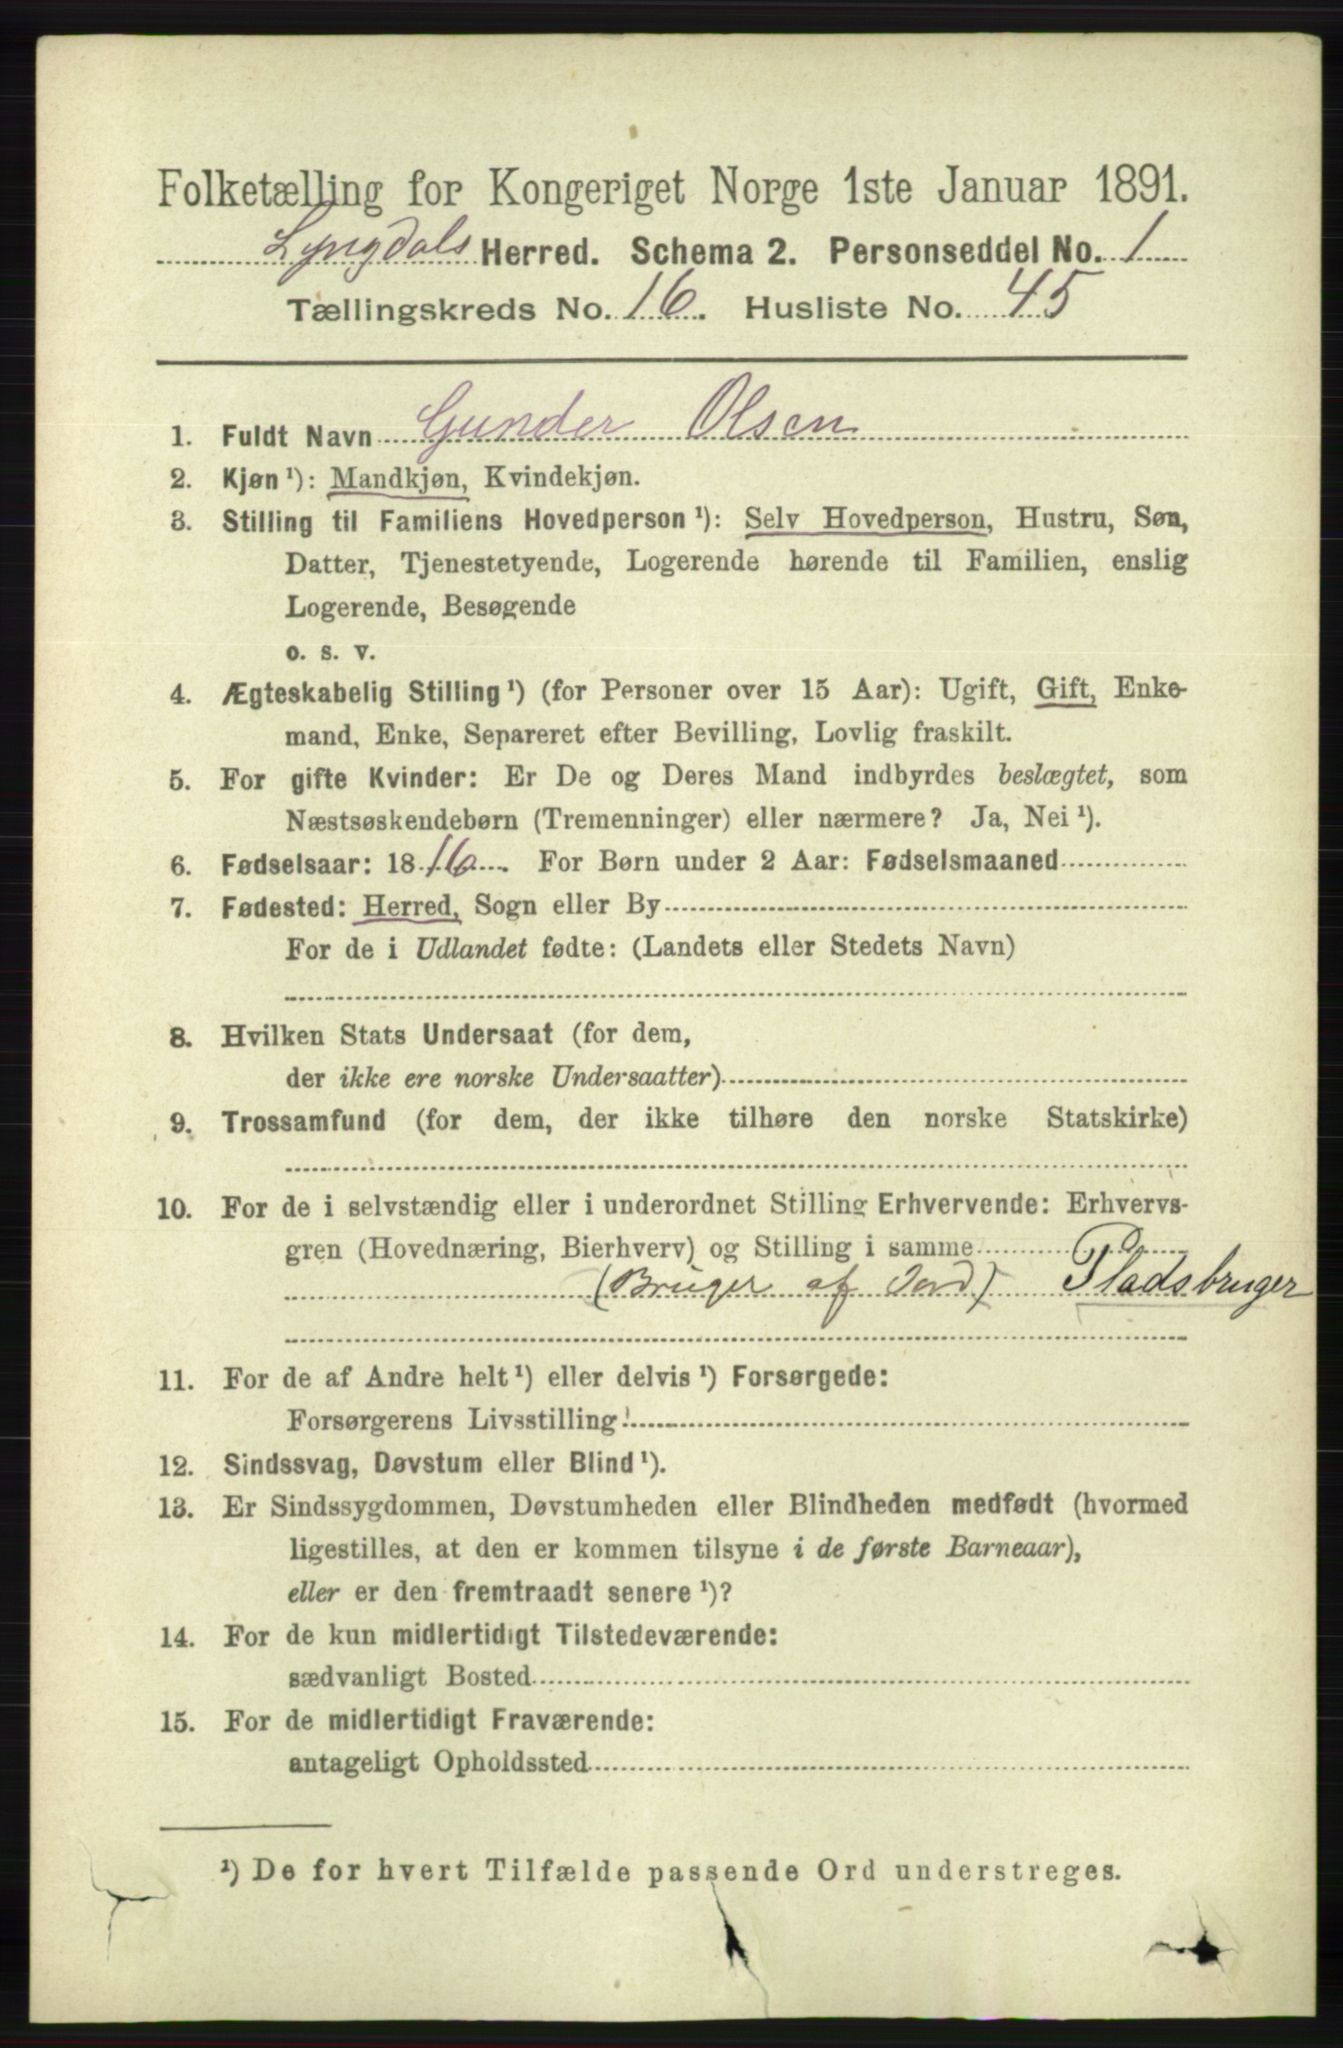 Folketælling for Kongeriget Norge 1ste Januar 1891.
Lyngdals Herred. Schema 2. Personseddel No. 1
Tællingskreds No. 16. Husliste No. 45
1. Fuldt Navn Gunder Olsen
2. Kjøn¹): Mandkjøn, Kvindekjøn.
3. Stilling til Familiens Hovedperson¹): Selv Hovedperson, Hustru, Søn,
Datter, Tjenestetyende, Logerende hørende til Familien, enslig
Logerende, Besøgende
o. s. v.
4. Ægteskabelig Stilling¹) (for Personer over 15 Aar): Ugift, Gift, Enke-
mand, Enke, Separeret efter Bevilling, Lovlig fraskilt.
5. For gifte Kvinder: Er De og Deres Mand indbyrdes beslægtet, som
Næstsøskendebørn (Tremenninger) eller nærmere? Ja, Nei¹).
6. Fødselsaar: 1816. For Børn under 2 Aar: Fødselsmaaned
7. Fødested: Herred, Sogn eller By
For de i Udlandet fødte: (Landets eller Stedets Navn)
8. Hvilken Stats Undersaat (for dem,
der ikke ere norske Undersaatter)
9. Trossamfund (for dem, der ikke tilhøre den norske Statskirke)
10. For de i selvstændig eller i underordnet Stilling Erhvervende: Erhvervs-
gren (Hovednæring, Bierhverv) og Stilling i samme
(Bruger af Jord) Pladsbruger
11. For de af Andre helt¹) eller delvis¹) Forsørgede:
Forsørgerens Livsstilling
12. Sindssvag, Døvstum eller Blind¹).
13. Er Sindssygdommen, Døvstumheden eller Blindheden medfødt (hvormed
ligestilles, at den er kommen tilsyne i de første Barneaar),
eller er den fremtraadt senere¹)?
14. For de kun midlertidigt Tilstedeværende:
sædvanligt Bosted
15. For de midlertidigt Fraværende:
antageligt Opholdssted
¹) De for hvert Tilfælde passende Ord understreges.